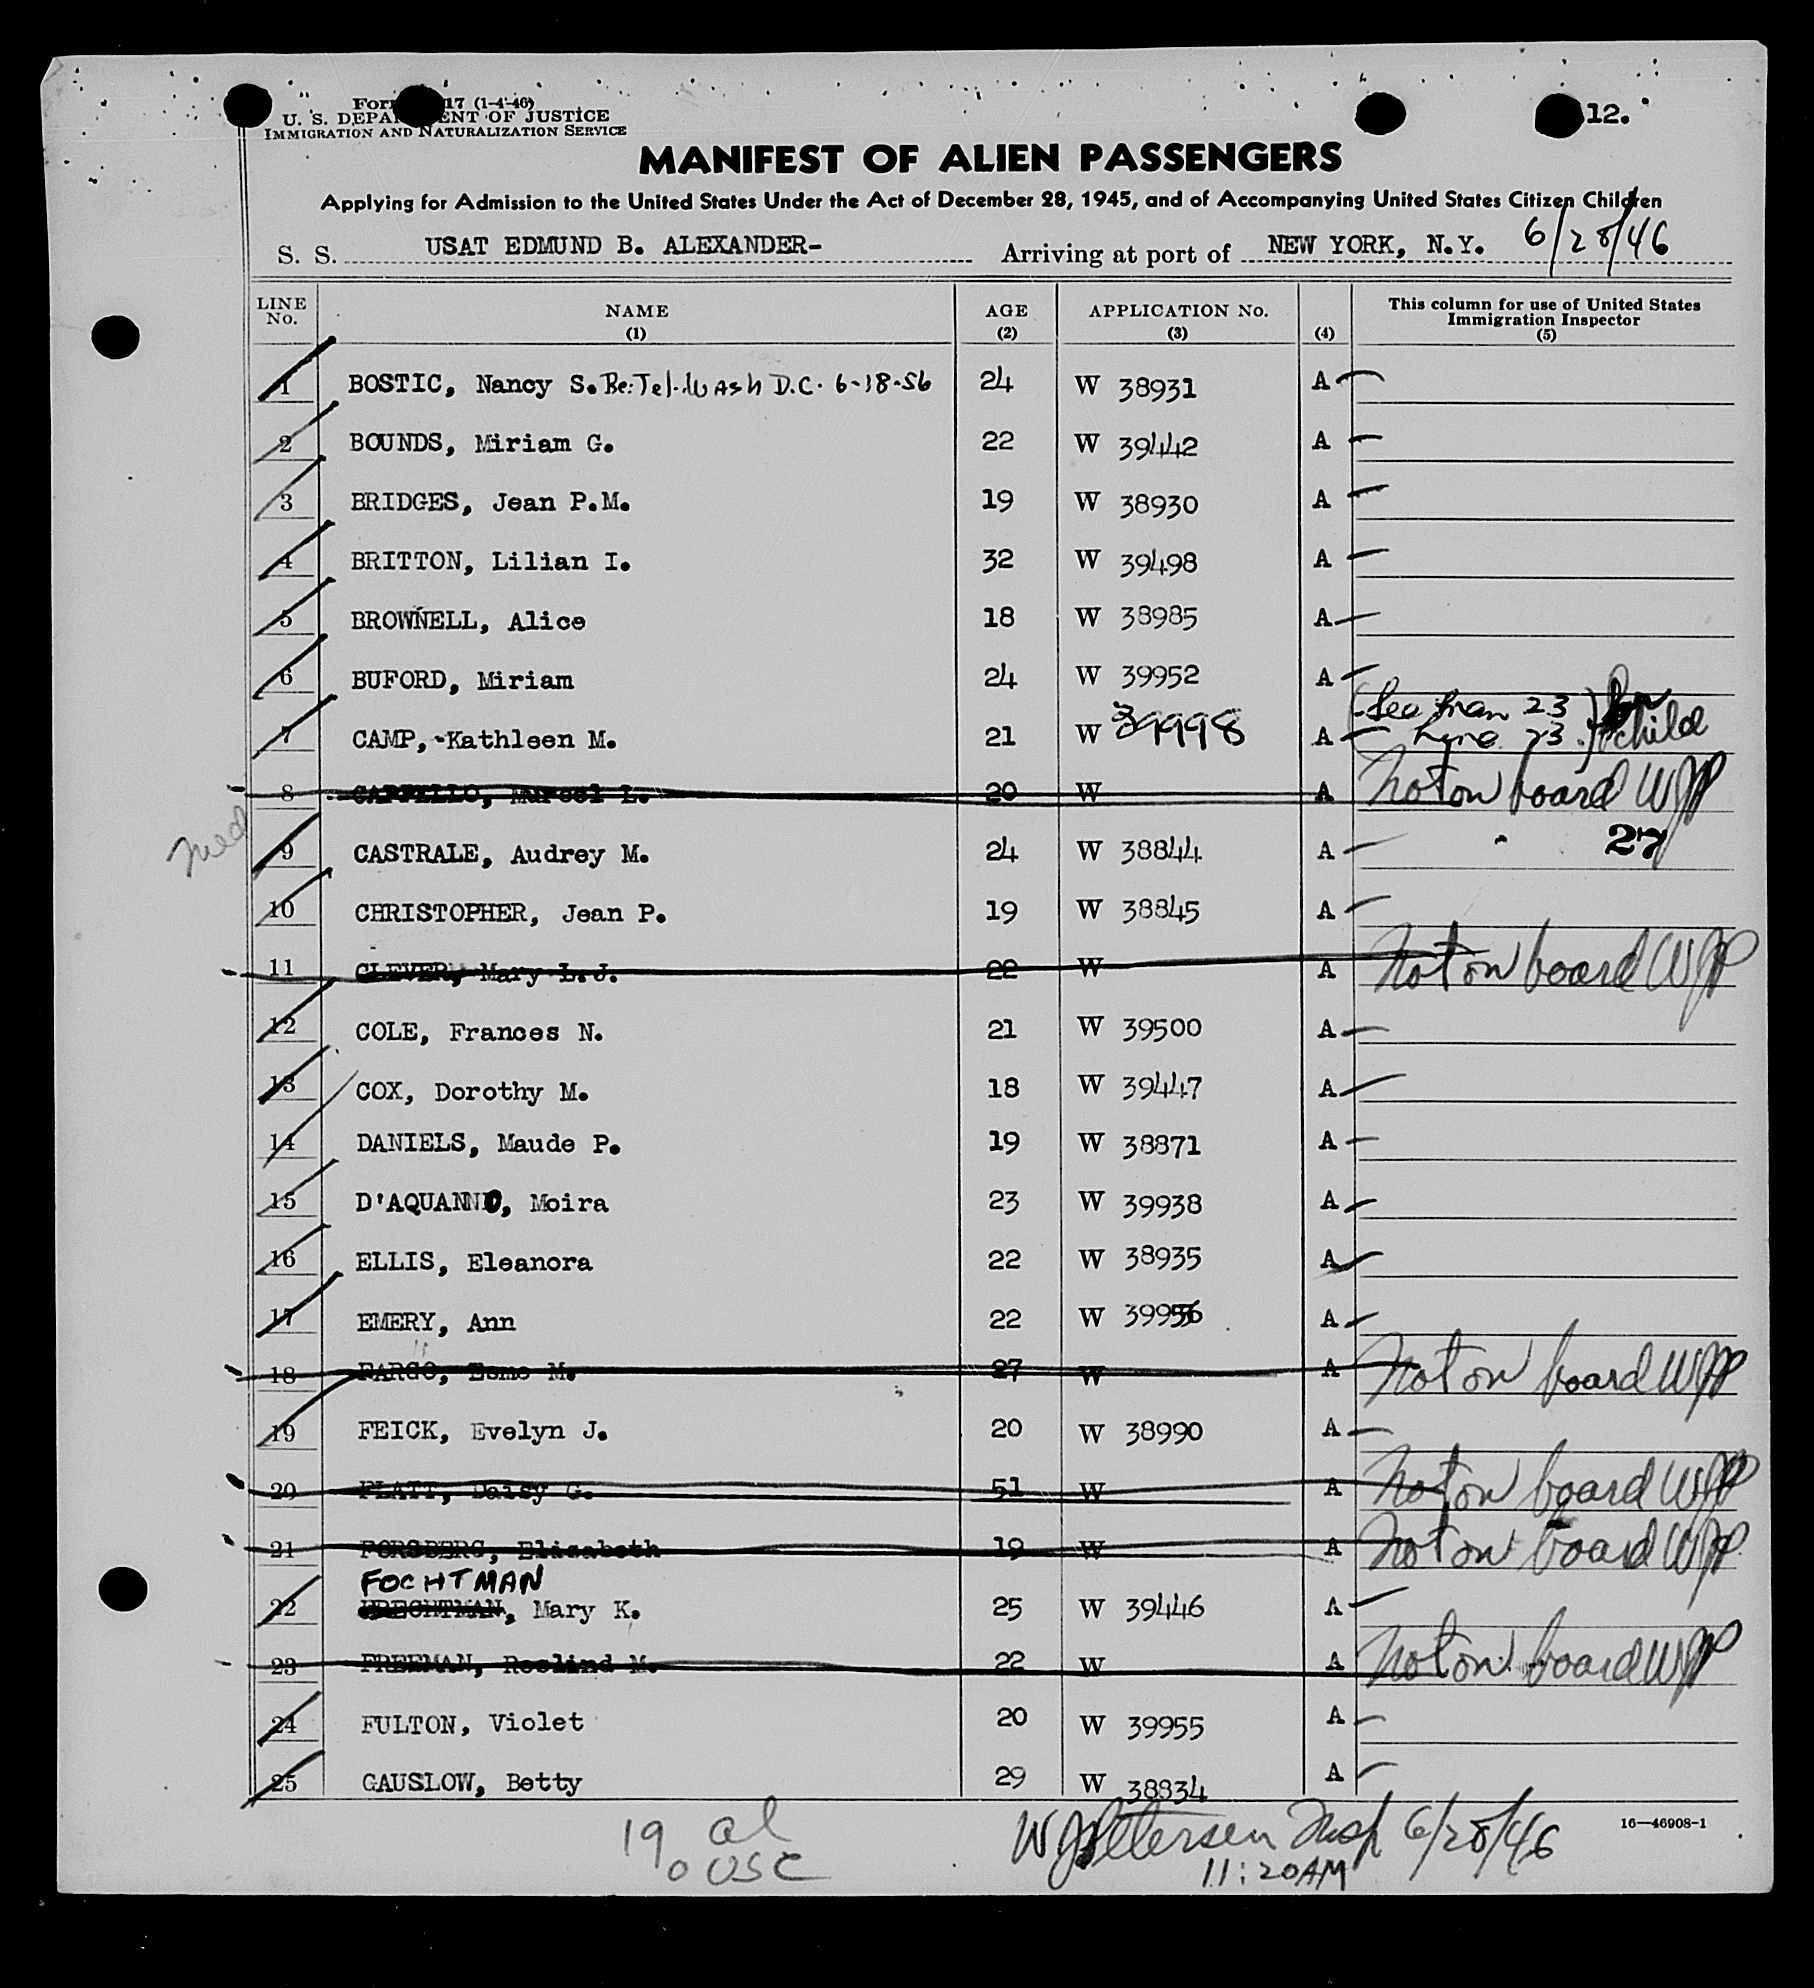 12.
Form 17 (1-4-46)
U. S. DEPARTMENT OF JUSTICE
IMMIGRATION AND NATURALIZATION SERVICE
MANIFEST OF ALIEN PASSENGERS
Applying for Admission to the United States Under the Act of December 28, 1945, and of Accompanying United States Citizen Children
S. S. USAT EDMUND B. ALEXANDER- Arriving at port of NEW YORK, N.Y. 6/28/46
LINE No. NAME (1) AGE (2) APPLICATION No. (3) (4) This column for use of United States Immigration Inspector (5)
1 BOSTIC, Nancy S. Re: Tel. Wash D.C. 6-18-56 24 W 38931 A
2 BOUNDS, Miriam G. 22 W 39442 A
3 BRIDGES, Jean P.M. 19 W 38930 A
4 BRITTON, Lilian I. 32 W 39498 A
5 BROWNELL, Alice 18 W 38985 A
6 BUFORD, Miriam 24 W 39952 A
7 CAMP, -Kathleen M. 21 W 39998 A (See Man 23 line 23) for child
8 CAPPELLO, Muresl L. 20 W A Not on board WJP
med 9 CASTRALE, Audrey M. 24 W 38844 A 27
10 CHRISTOPHER, Jean P. 19 W 38845 A
11 CLEVER, Mary L.J. 22 W A Not on board WJP
12 COLE, Frances N. 21 W 39500 A
13 COX, Dorothy M. 18 W 39447 A
14 DANIELS, Maude P. 19 W 38871 A
15 D'AQUANNO, Moira 23 W 39938 A
16 ELLIS, Eleanora 22 W 38935 A
17 EMERY, Ann 22 W 39956 A
18 FARGO, Esme M. 27 W A Not on board WJP
19 FEICK, Evelyn J. 20 W 38990 A
20 FLATT, Daisy G. 51 W A Not on board WJP
21 FORSBERG, Elisabeth 19 W A Not on board WJP
FOCHTMAN
22 , Mary K. 25 W 39446 A
23 FREEMAN, Roslind M. 22 W A Not on board WJP
24 FULTON, Violet 20 W 39955 A
25 GAUSLOW, Betty 29 W 38834 A
16—46908-1
19 al W J Petersen Insp 6/28/46
0 USC 11:20AM